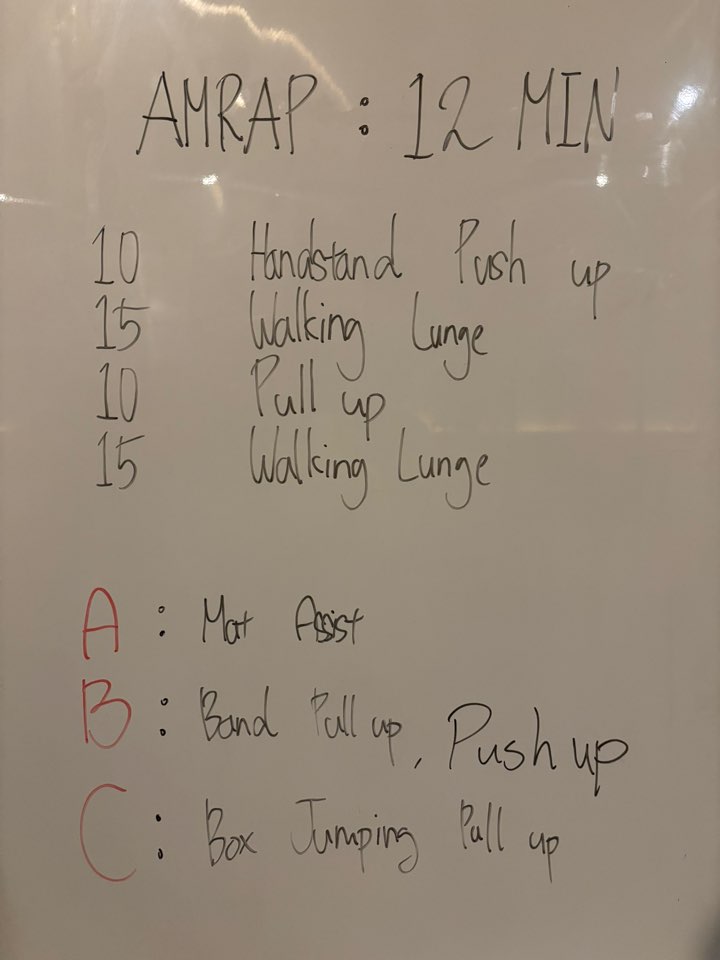 AMRAP : 12 MIN
10 Handstand Push up
15 Walking Lunge
10 Pull up
15 Walking Lunge
A : Mat Assist
B : Band Pull up, Push up
C : Box Jumping Pull up